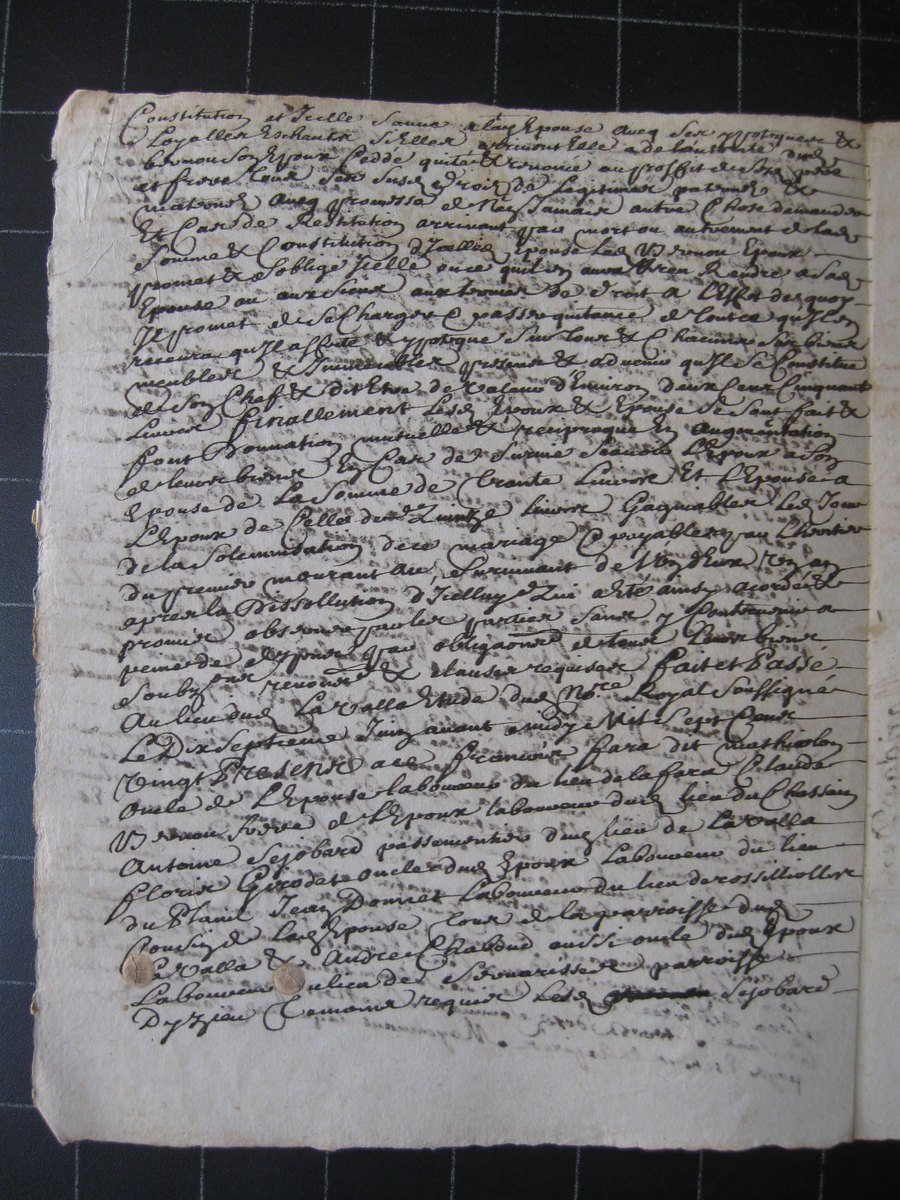 Constitution et Icelle Sauve a lad Epouse aveq Ses ypoteques &
Loyalles Escheutes Sielles aviennent Elle a de lautorité dud
Vernou Son Epoux Cedde quite & renonce au proffit de Sesd pere
et frere tous Ses Susd droits de Legitimes paternels &
maternels aveq promesse de Ny Jamais autre Chose demander
Et Cas de Restitution arrivant par mort ou autrement de lad
Somme & Constitution d'Icelle Epouse Led Vernou Epoux
promet & Soblige Icelle once quil en aura rien Rendre a Sad
Epouse ou aux Siens aux termes de droit a l'Effet de quoy
Il promet de Se Charger & passer quitance de tout ce qu'Il en
recevra qu'Il affecte & ypoteque Sur tous & Chacuns Ses biens
meubles & Immeubles presents & advenir qu'Il Se Constitue
de Son Chef & dit Etre de valeur d'Environ deux Cens Cinquante
Livres finallement Lesd Epoux & Epouse Se Sont fait &
font Donnation mutuelle & reciproque En augmentation
de leurs biens En Cas de Survie Scavoir L'Epoux a Son
Epouse de La Somme de Trante Livres Et L'Epouse a
L'Epoux de Celle de Quinze Livres Gagnables Led Jour
de la Solemnisation de ce mariage & payables par Lheritier
du premier mourant au Survivant de L'un d'Eux Un an
apres la Dissollution d'Icelluy Qui a été ainsy acordé &
promis observer par les parties Sans y Contrevenir a
peine de depens par obligaons de tous Leurs biens
Soubzons renonons & clauses requises fait et Passé
Au lieu dud La Valla Etude dud Nore Royal Soussigné
Le Dix Septieme Juin avant midy Mil Sept Cens
vingt Presents a ce francois fara dit mathicolon
oncle de L'Epouse laboureur du lieu de la fara Claude
Vernou frere de L'Epoux laboureur dud lieu du Chossain
Antoine Sejobard passementier dud lieu de La valla
floris Girodet oncle dud Epoux Laboureur du lieu
du Planil Jean Donnet Laboureur du lieu de rossilliolles
Cousin de Lad Epouse tous de la parroisse dud
La Valla & André Chaboud aussi oncle dud Epoux
Laboureur du lieu de parroisse
D'yzieu temoins requis Lesd Sejobard